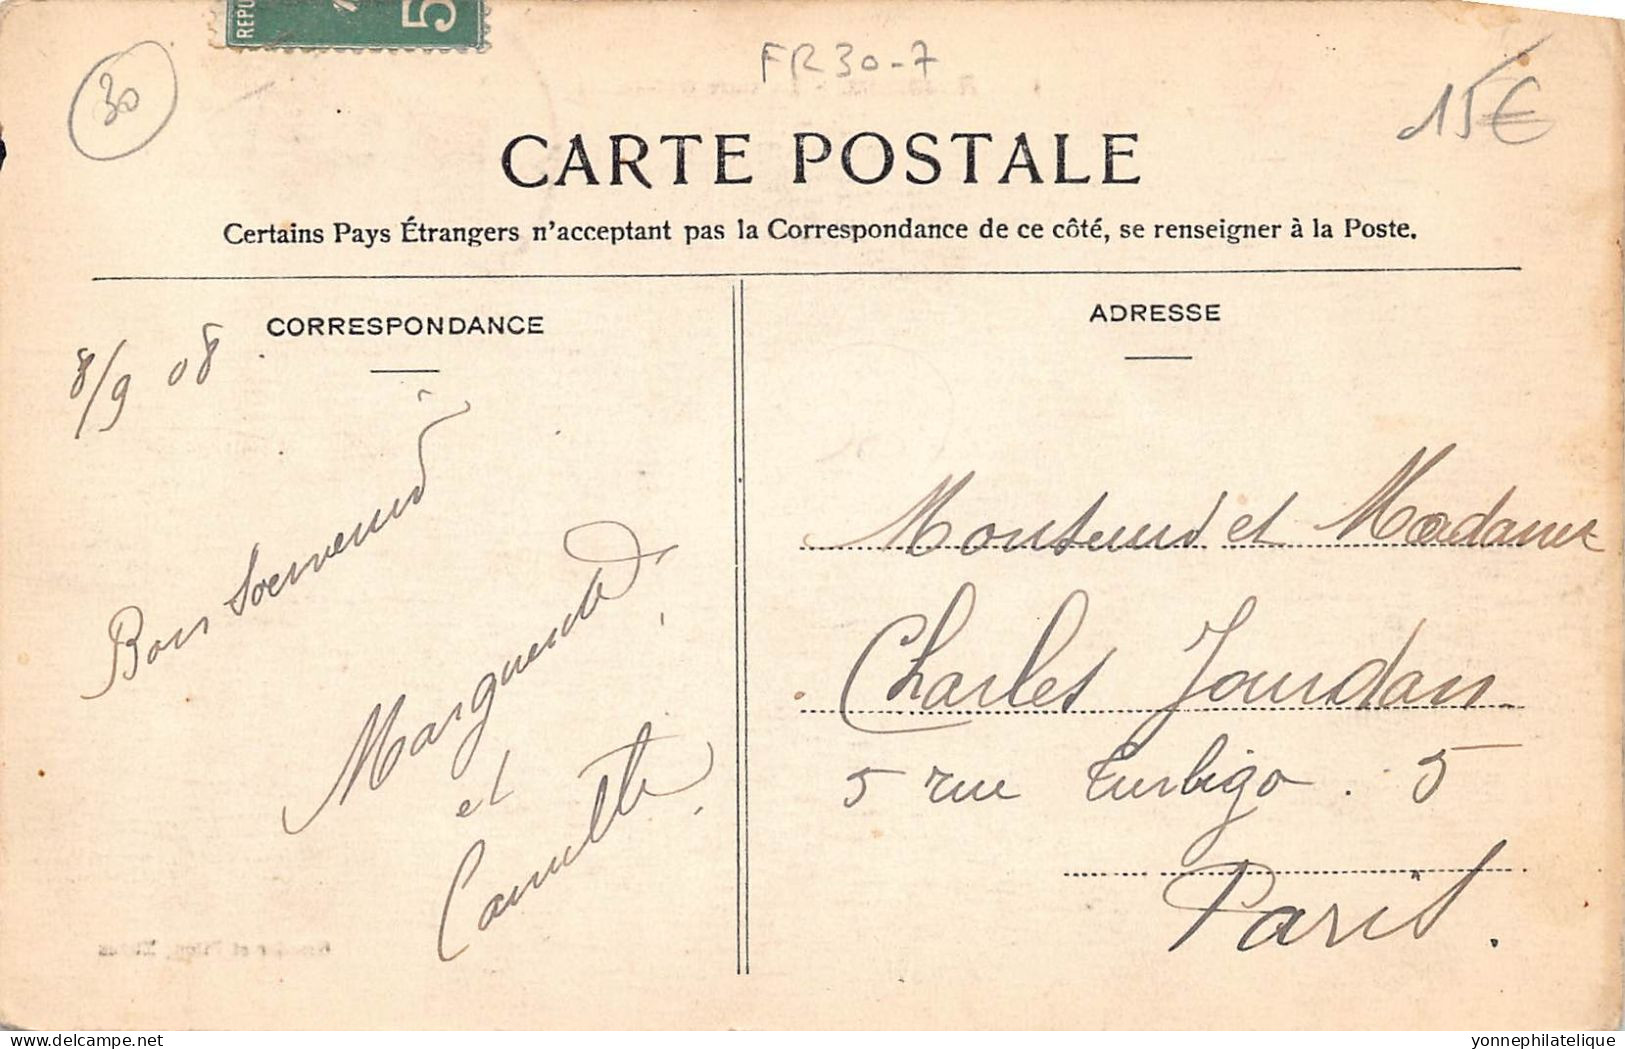 REPU
5
30
FR30-7
15€
CARTE POSTALE
Certains Pays Étrangers n'acceptant pas la Correspondance de ce côté, se renseigner à la Poste.
CORRESPONDANCE
8/9 08
Bon Souvenir
Marguerite
et
Camille
ADRESSE
Monsieur et Madame
Charles Jourdan
5 rue Turbigo . 5
Paris.
delcampe.net
yonnephilatelique